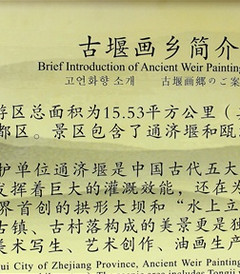 古堰画乡简介
Brief Introduction of Ancient Weir Painting
고언화향 소개 古堰画郷のご案
游区总面积为15.53平方公里（
都区。景区包含了通济堰和瓯
护单位通济堰是中国古代五大
发挥着巨大的灌溉效能，还在
界首创的拱形大坝和“水上立
古镇、古村落构成的美景更是独
美术写生、艺术创作、油画生产
ui City of Zhejiang Province, Ancient Weir Painting